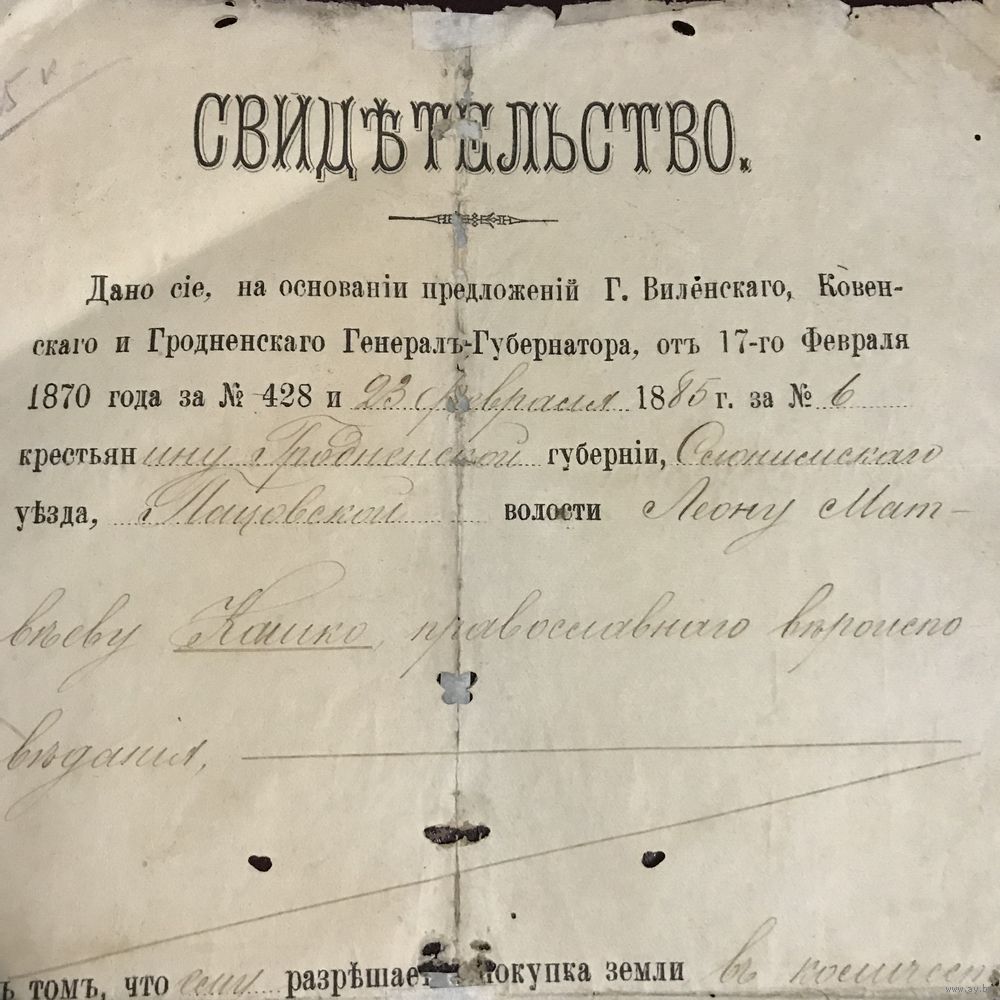 5 к
СВИДѢТЕЛЬСТВО.
Дано сіе, на основаніи предложеній Г. Виленскаго, Ковен-
скаго и Гродненскаго Генералъ-Губернатора, отъ 17-го Февраля
1870 года за № 428 и 23 февраля 1885 г. за № 6
крестьянину Гродненской губерніи, Слонимскаго
уѣзда, Пацовской волости Леону Мат-
вѣеву Кашко, православнаго вѣроиспо
вѣданія,
ъ томъ, что ему разрѣшае покупка земли въ количест
www.ay.by